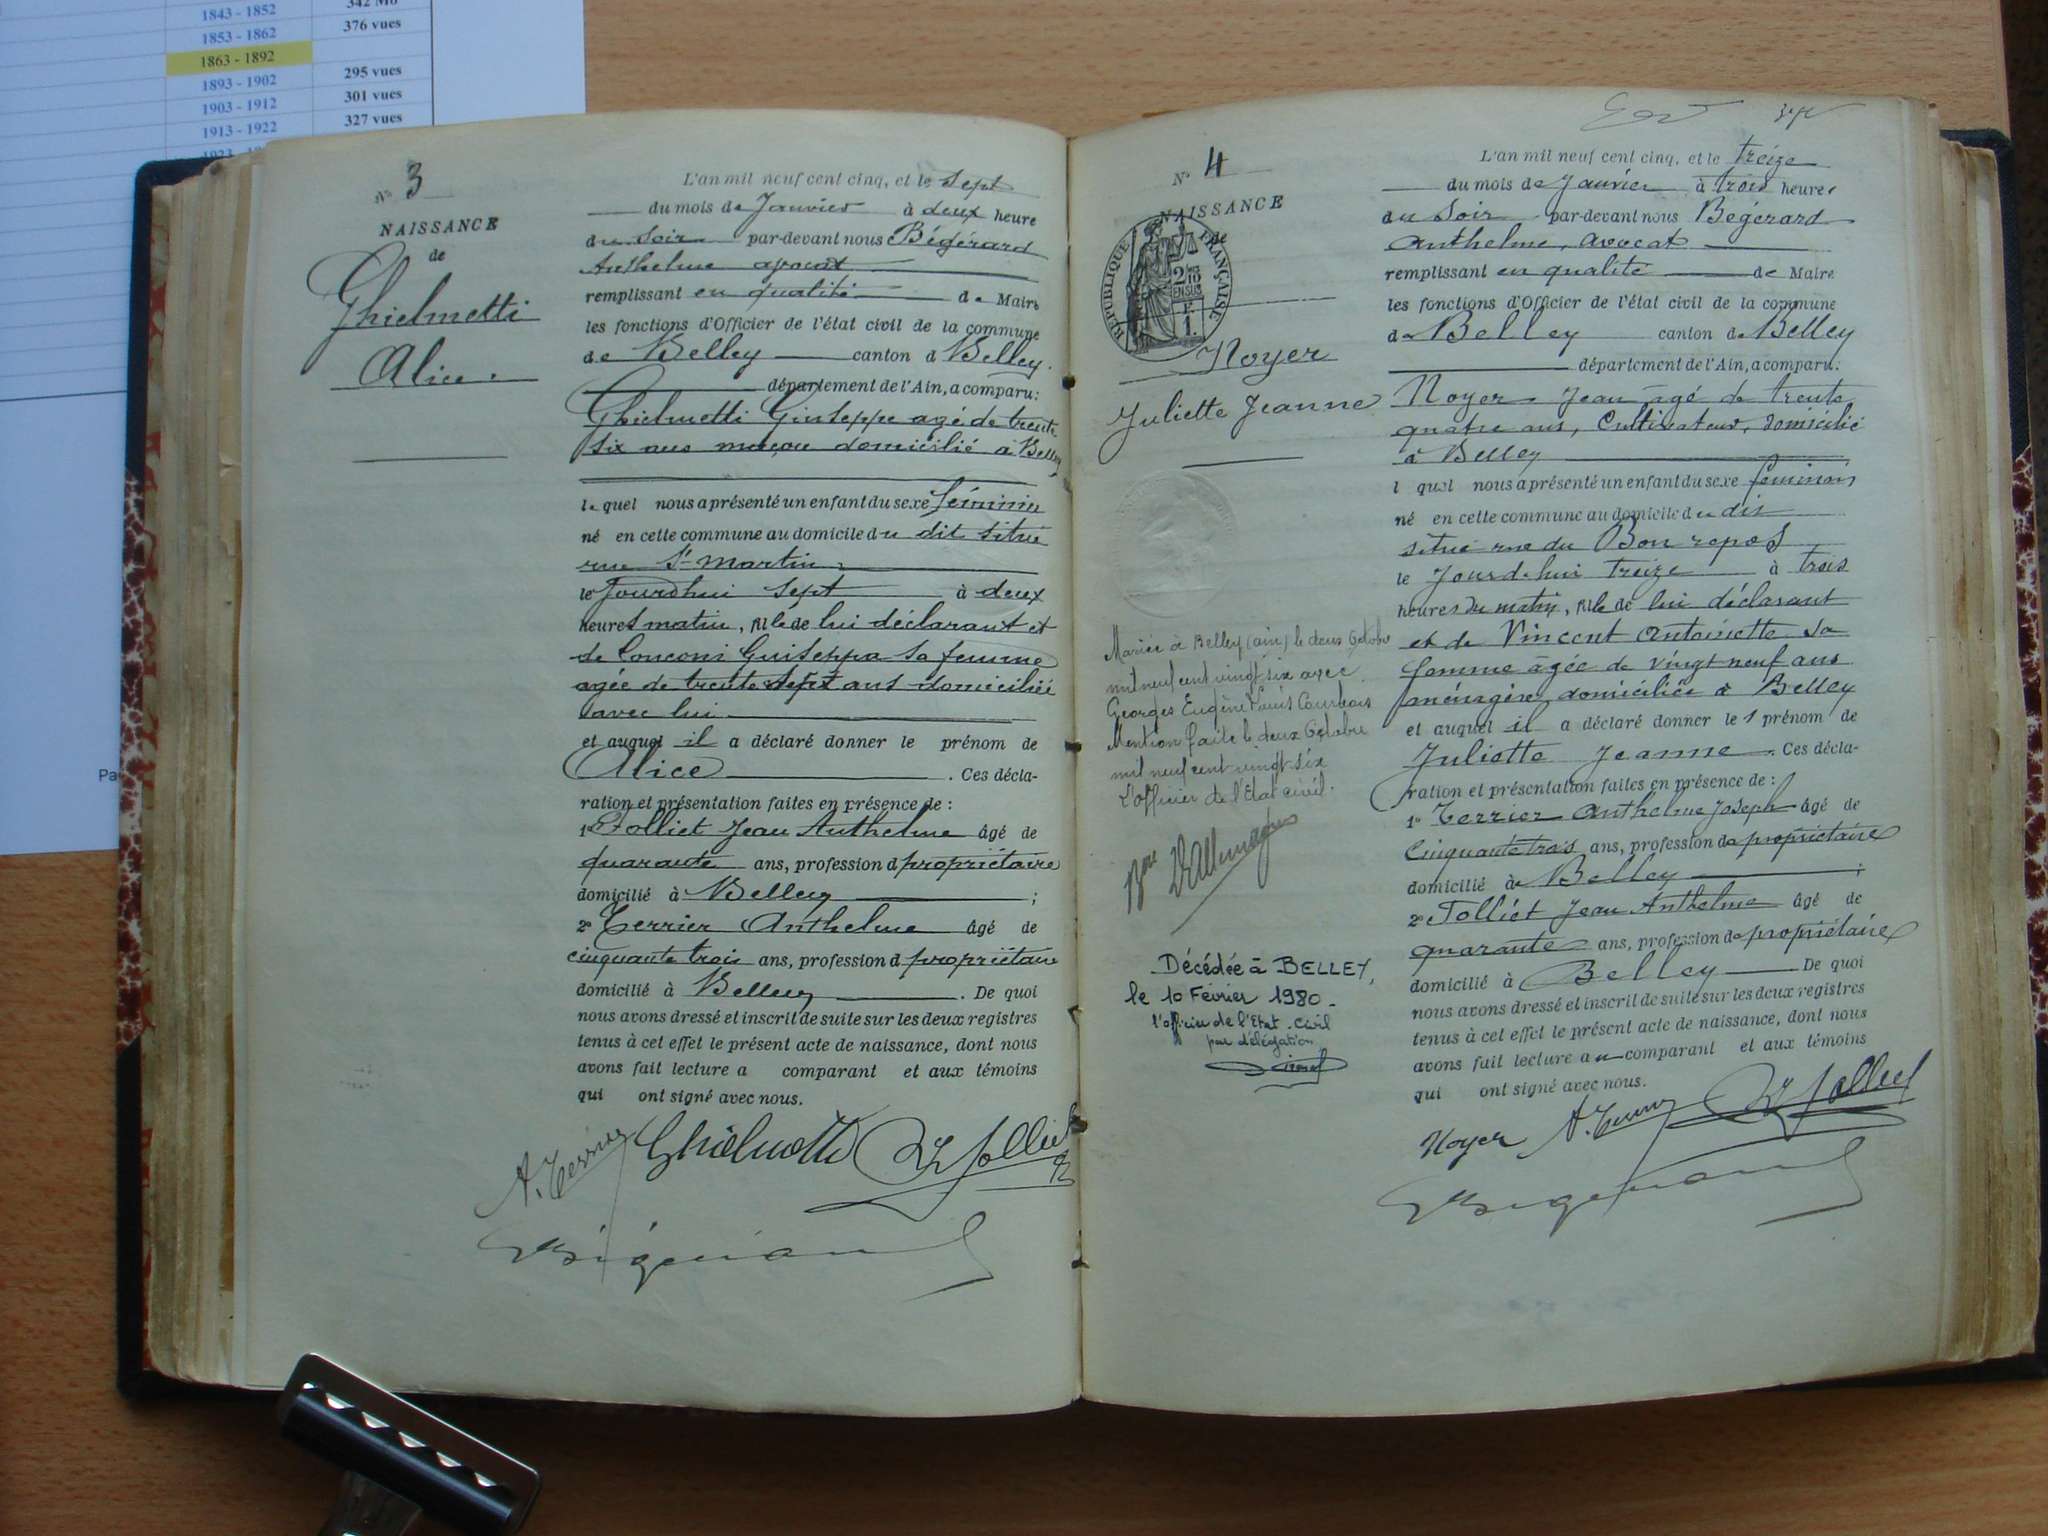 342 Mo
1843 - 1852
376 vues
1853 - 1862
1863 - 1892
1893 - 1902 295 vues
1903 - 1912 301 vues
1913 - 1922 327 vues
Pa
N° 3
NAISSANCE
de
Ghielmetti
Alice.
L'an mil neuf cent cinq, et le sept
du mois de Janvier à deux heure
du soir par-devant nous Bégérard
Anthelme avocat
remplissant en qualité de Maire
les fonctions d'Officier de l'état civil de la commune
de Belley canton d Belley.
département de l'Ain, a comparu:
Ghielmetti Giuseppe agé de trente
six ans maçon domicilié à Belley
le quel nous a présenté un enfant du sexe féminin
né en cette commune au domicile du dit situé
rue St martin
le Jourdhui sept à deux
heures matin, fille de lui déclarant et
de Conconi Guiseppa sa femme
agée de trente sept ans domiciliée
avec lui
et auquel il a déclaré donner le prénom de
Alice . Ces décla-
ration et présentation faites en présence de :
1° Tolliet Jean Anthelme âgé de
quarante ans, profession d propriétaire
domicilié à Belley ;
2° Terrier Anthelme âgé de
cinquante trois ans, profession d propriétaire
domicilié à Belley . De quoi
nous avons dressé et inscrit de suite sur les deux registres
tenus à cet effet le présent acte de naissance, dont nous
avons fait lecture a comparant et aux témoins
qui ont signé avec nous.
A. Terrier Ghielmetti Tolliet
Bégérard
N° 4
NAISSANCE
de
RÉPUBLIQUE FRANÇAISE
2/10
EN SUS
F.
1.
Noyer
Juliette Jeanne
Mariée à Belley (ain) le deux Octobre
mil neuf cent vingt six avec
Georges Eugène Louis Courbois
Mention faite le deux Octobre
mil neuf cent vingt six
L'officier de l'Etat civil.
Décédée à BELLEY,
le 10 Février 1980.
l'officier de l'Etat-Civil
par délégation
L'an mil neuf cent cinq, et le treize
du mois de Janvier à trois heures
du soir par-devant nous Bégérard
Anthelme, avocat
remplissant en qualité de Maire
les fonctions d'Officier de l'état civil de la commune
de Belley canton de Belley
département de l'Ain, a comparu:
Noyer Jean âgé de trente
quatre ans, Cultivateur, domicilié
à Belley
l quel nous a présenté un enfant du sexe féminin
né en cette commune au domicile du dit
situé rue du Bon repos
le Jourd'hui treize à trois
heures du matin, fille de lui déclarant
et de Vincent Antoinette sa
femme âgée de vingt neuf ans
ménagère, domiciliée à Belley
et auquel il a déclaré donner le s prénom de
Juliette Jeanne . Ces décla-
ration et présentation faites en présence de :
1° Terrier Anthelme Joseph âgé de
Cinquante trois ans, profession de propriétaire
domicilié à Belley ;
2° Tolliet Jean Anthelme âgé de
quarante ans, profession de propriétaire
domicilié à Belley De quoi
nous avons dressé et inscrit de suite sur les deux registres
tenus à cet effet le présent acte de naissance, dont nous
avons fait lecture au comparant et aux témoins
qui ont signé avec nous.
Noyer A. Terrier Tolliet
Bégérard